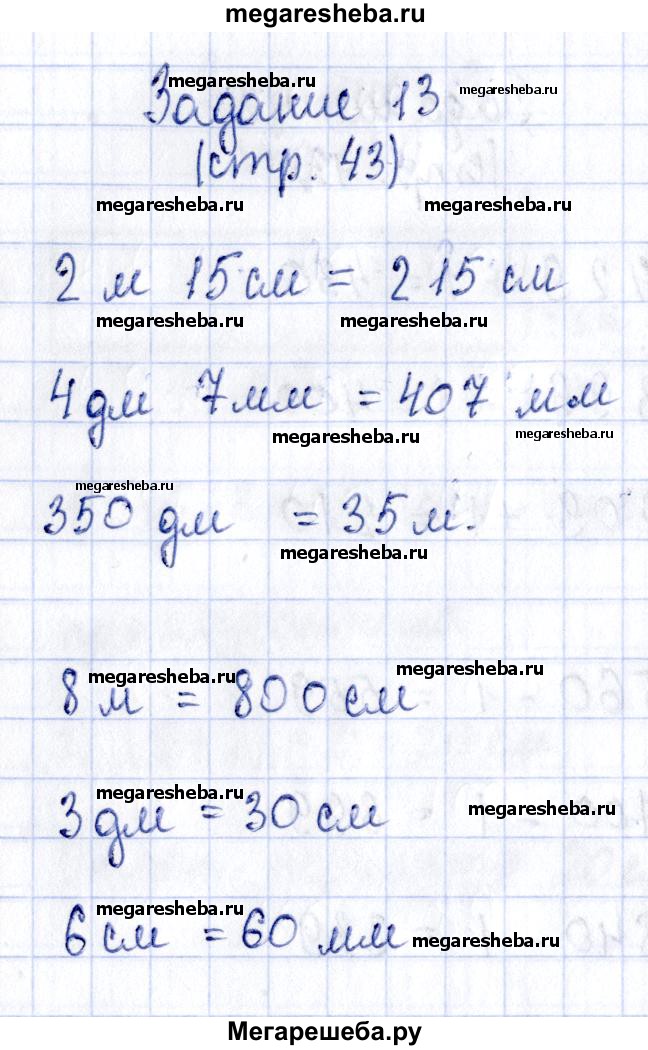 megaresheba.ru
megaresheba.ru
megaresheba.ru
Задание 13
(стр. 43)
megaresheba.ru
megaresheba.ru
2 м 15 см = 215 см
megaresheba.ru
megaresheba.ru
4 дм 7 мм = 407 мм
megaresheba.ru
megaresheba.ru
megaresheba.ru
350 дм = 35 м.
megaresheba.ru
megaresheba.ru
megaresheba.ru
8 м = 800 см
megaresheba.ru
megaresheba.ru
3 дм = 30 см
megaresheba.ru
6 см = 60 мм
megaresheba.ru
Мегарешеба.ру